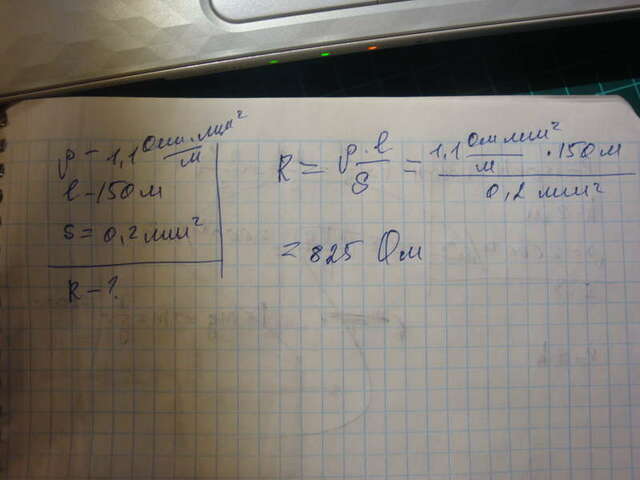 ρ - 1,1 Ом·мм²/м
l - 150 м
S = 0,2 мм²
R - ?
R = ρ·l/S = 1,1 Ом мм²/м · 150 м / 0,2 мм²
= 825 Ом